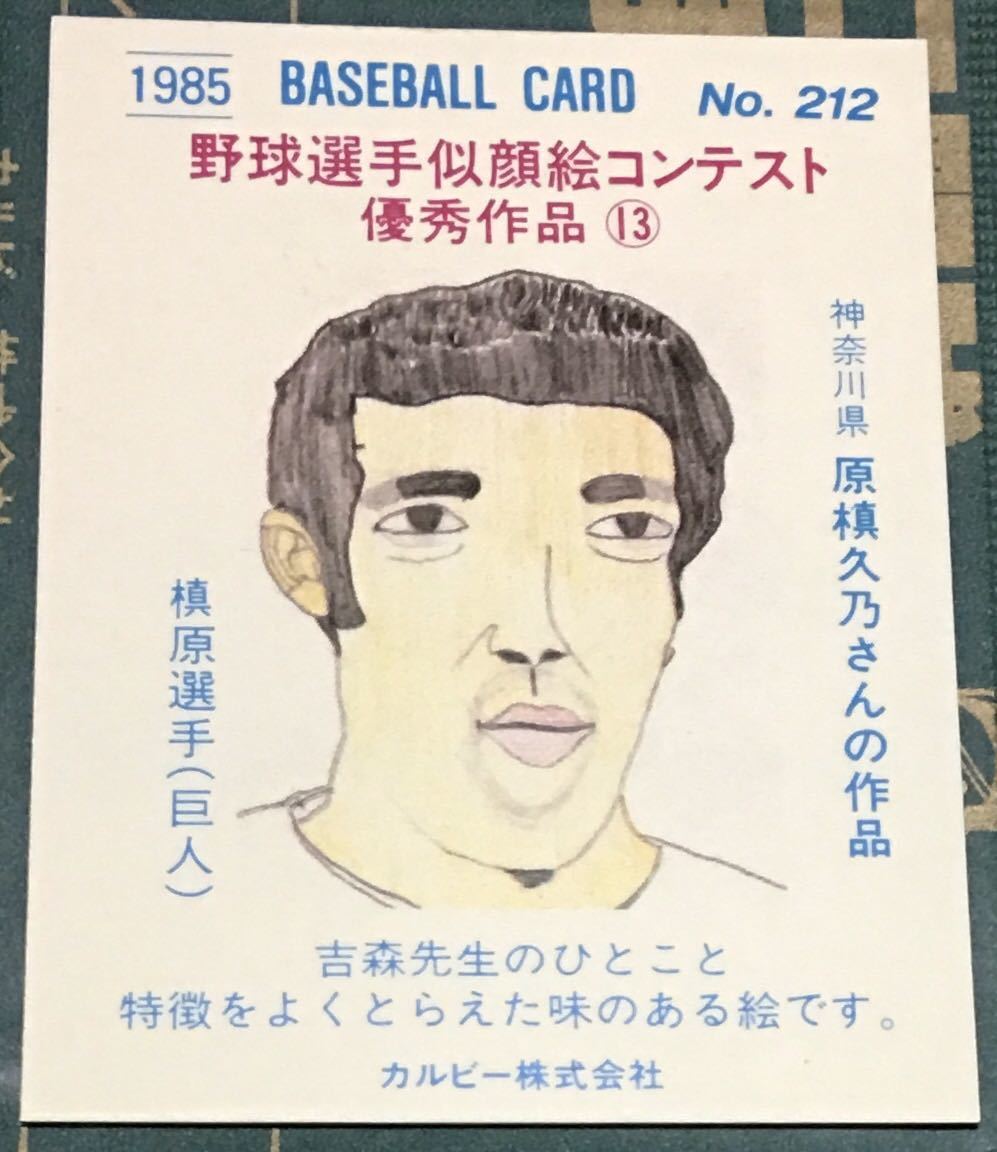 1985 BASEBALL CARD No. 212
野球選手似顔絵コンテスト
優秀作品 ⑬
神奈川県 原槙久乃さんの作品
槙原選手(巨人)
吉森先生のひとこと
特徴をよくとらえた味のある絵です。
カルビー株式会社